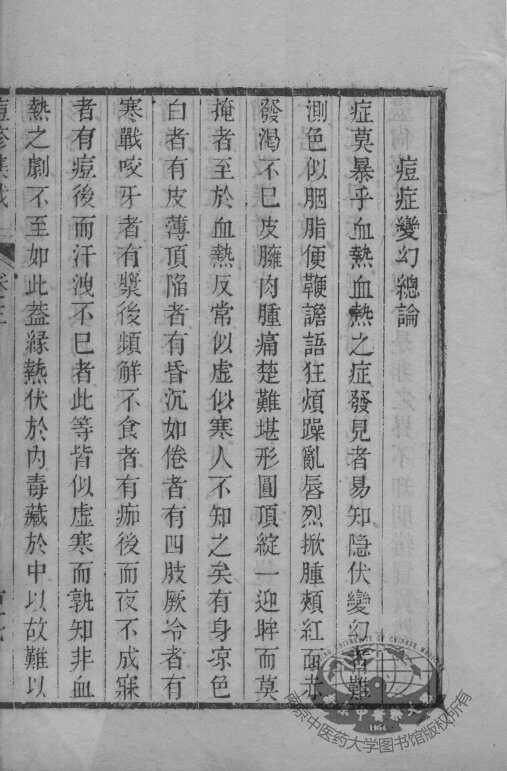 痘症變幻總論
症莫暴乎血熱血熱之症發見者易知隐伏變幻者難
測色似胭脂便鞕譫語狂煩躁亂唇烈掀腫頰紅面赤
發渴不已皮臃肉腫痛楚難堪形圓頂綻一迎眸而莫
掩者至於血熱反常似虛似寒人不知之矣有身凉色
白者有皮薄頂陷者有昏沉如倦者有四肢厥冷者有
寒戰咬牙者有漿後頻觧不食者有痂後而夜不成寐
者有痘後而汗洩不已者此等皆似虛寒而孰知非血
熱之劇不至如此葢緣熱伏於內毒藏於中以故難以
卷之三
南京中医药大学图书馆版权所有